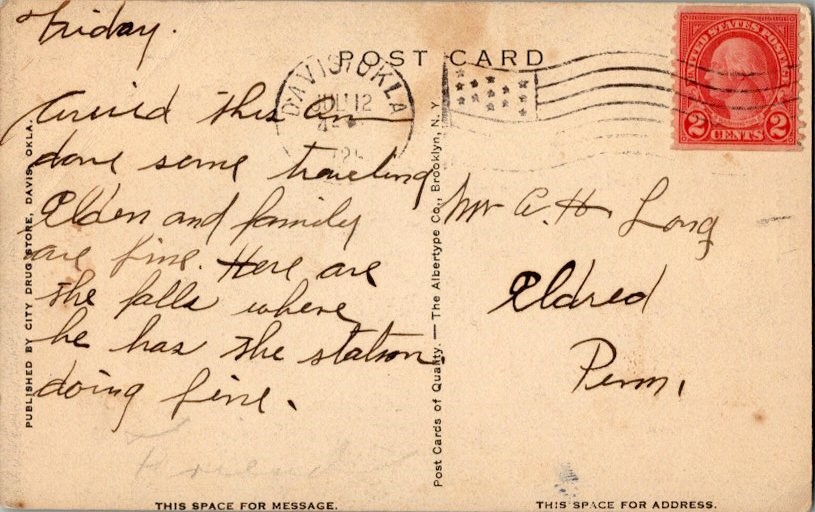 Friday.
POST CARD
DAVIS, OKLA
JUL 12
UNITED STATES POSTAGE
2 CENTS 2
Arived this am
done some traveling
Elden and family
are fine. Here are
the falls where
he has the station
doing fine.
Friend
Mr A. H. Long
Eldred
Penn.
PUBLISHED BY CITY DRUG STORE, DAVIS, OKLA.
Post Cards of Quality. — The Albertype Co., Brooklyn, N. Y.
THIS SPACE FOR MESSAGE.
THIS SPACE FOR ADDRESS.